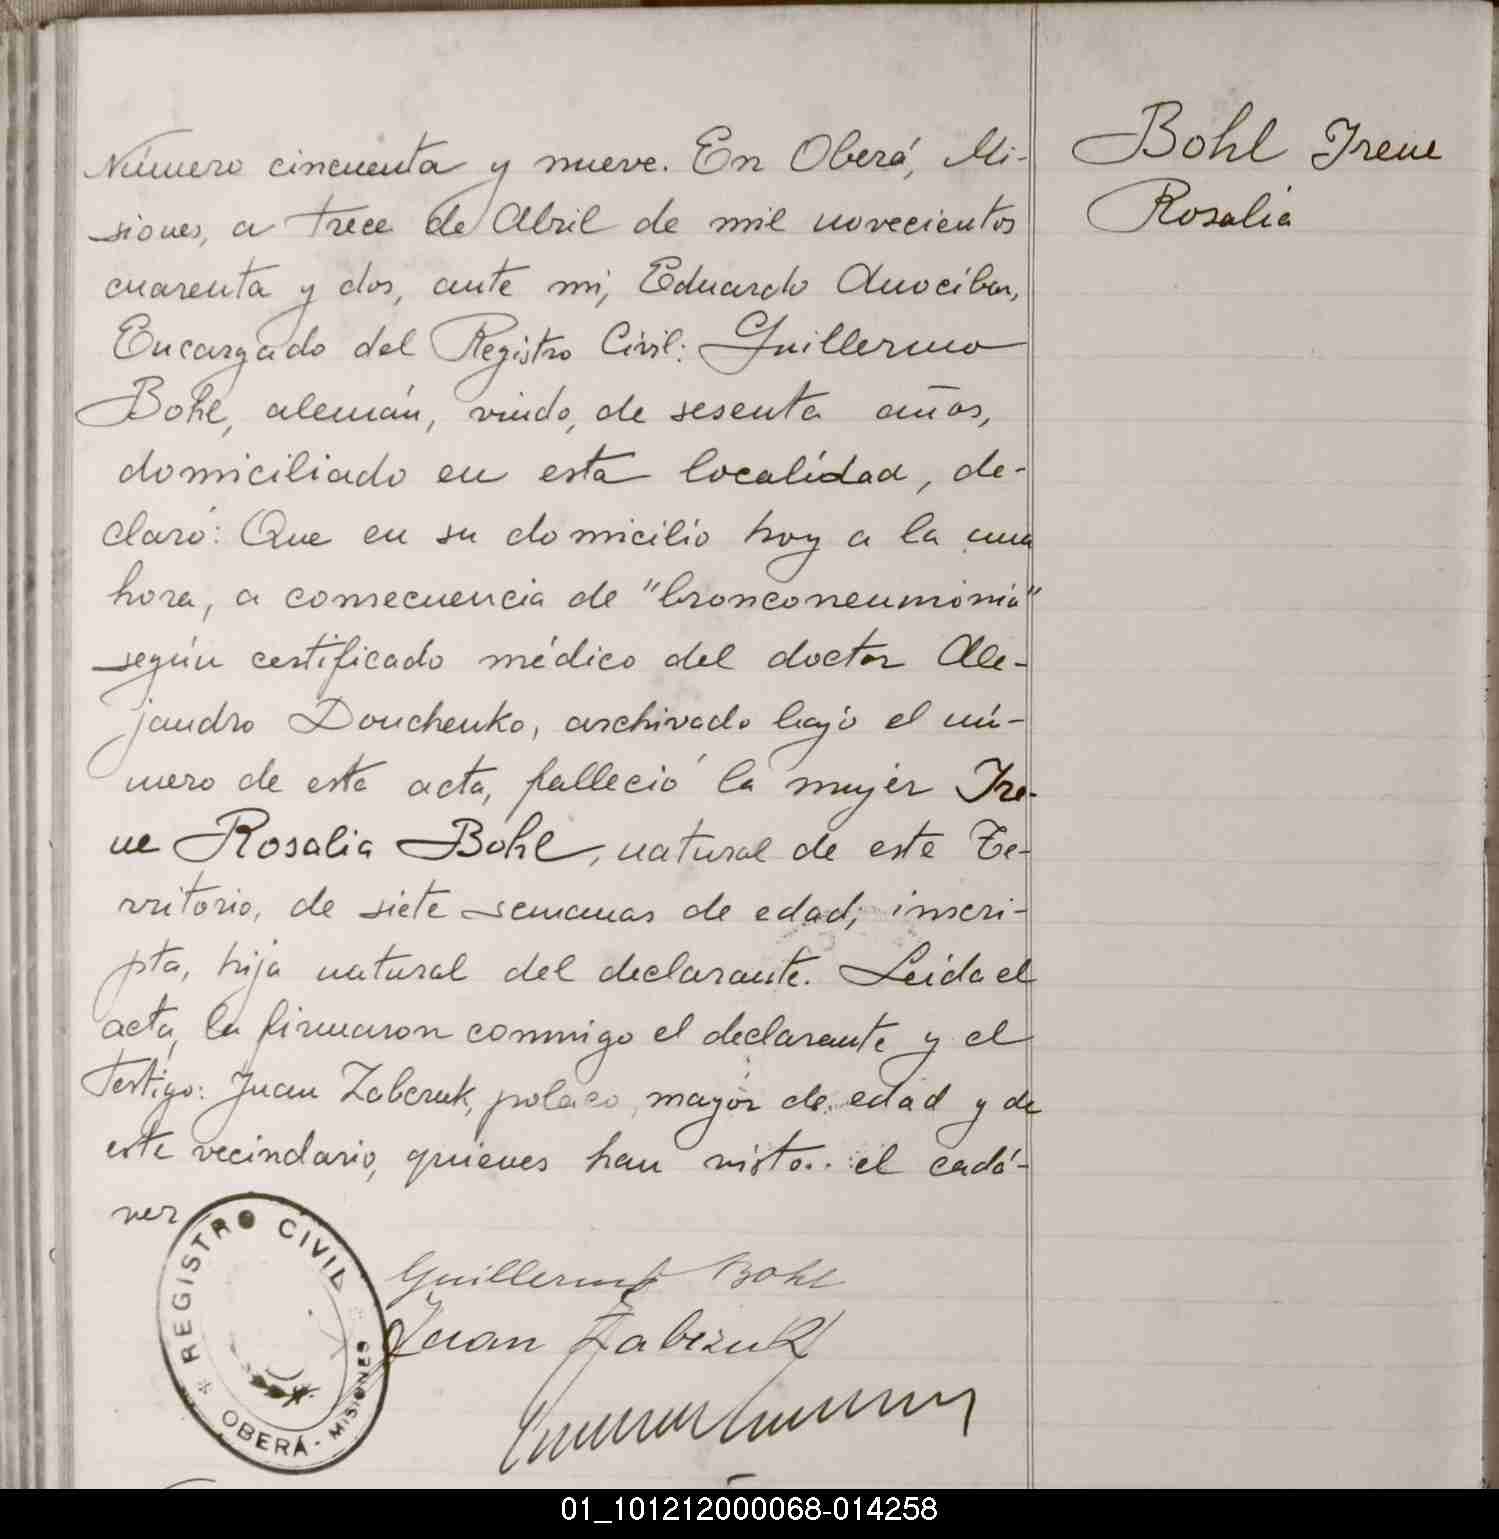 Número cincuenta y nueve. En Oberá, Mi-
siones, a trece de Abril de mil novecientos
cuarenta y dos, ante mi, Eduardo Anocibar,
Encargado del Registro Civil: Guillermo
Bohl, alemán, viudo, de sesenta años,
domiciliado en esta localidad, de-
claró: Que en su domicilio hoy a la una
hora, a consecuencia de "bronconeumonia"
según certificado médico del doctor Ale-
jandro Donchenko, archivado bajo el nú-
mero de esta acta, falleció la mujer Ire-
ne Rosalia Bohl, natural de este Te-
rritorio, de siete semanas de edad, inscri-
pta, hija natural del declarante. Leida el
acta, la firmaron conmigo el declarante y el
testigo: Juan Zabczuk, polaco, mayor de edad y de
este vecindario, quienes han visto el cadá-
ver
Bohl Irene
Rosalia
REGISTRO CIVIL
OBERÁ - MISIONES
Guillermo Bohl
Juan Zabczuk
01_101212000068-014258